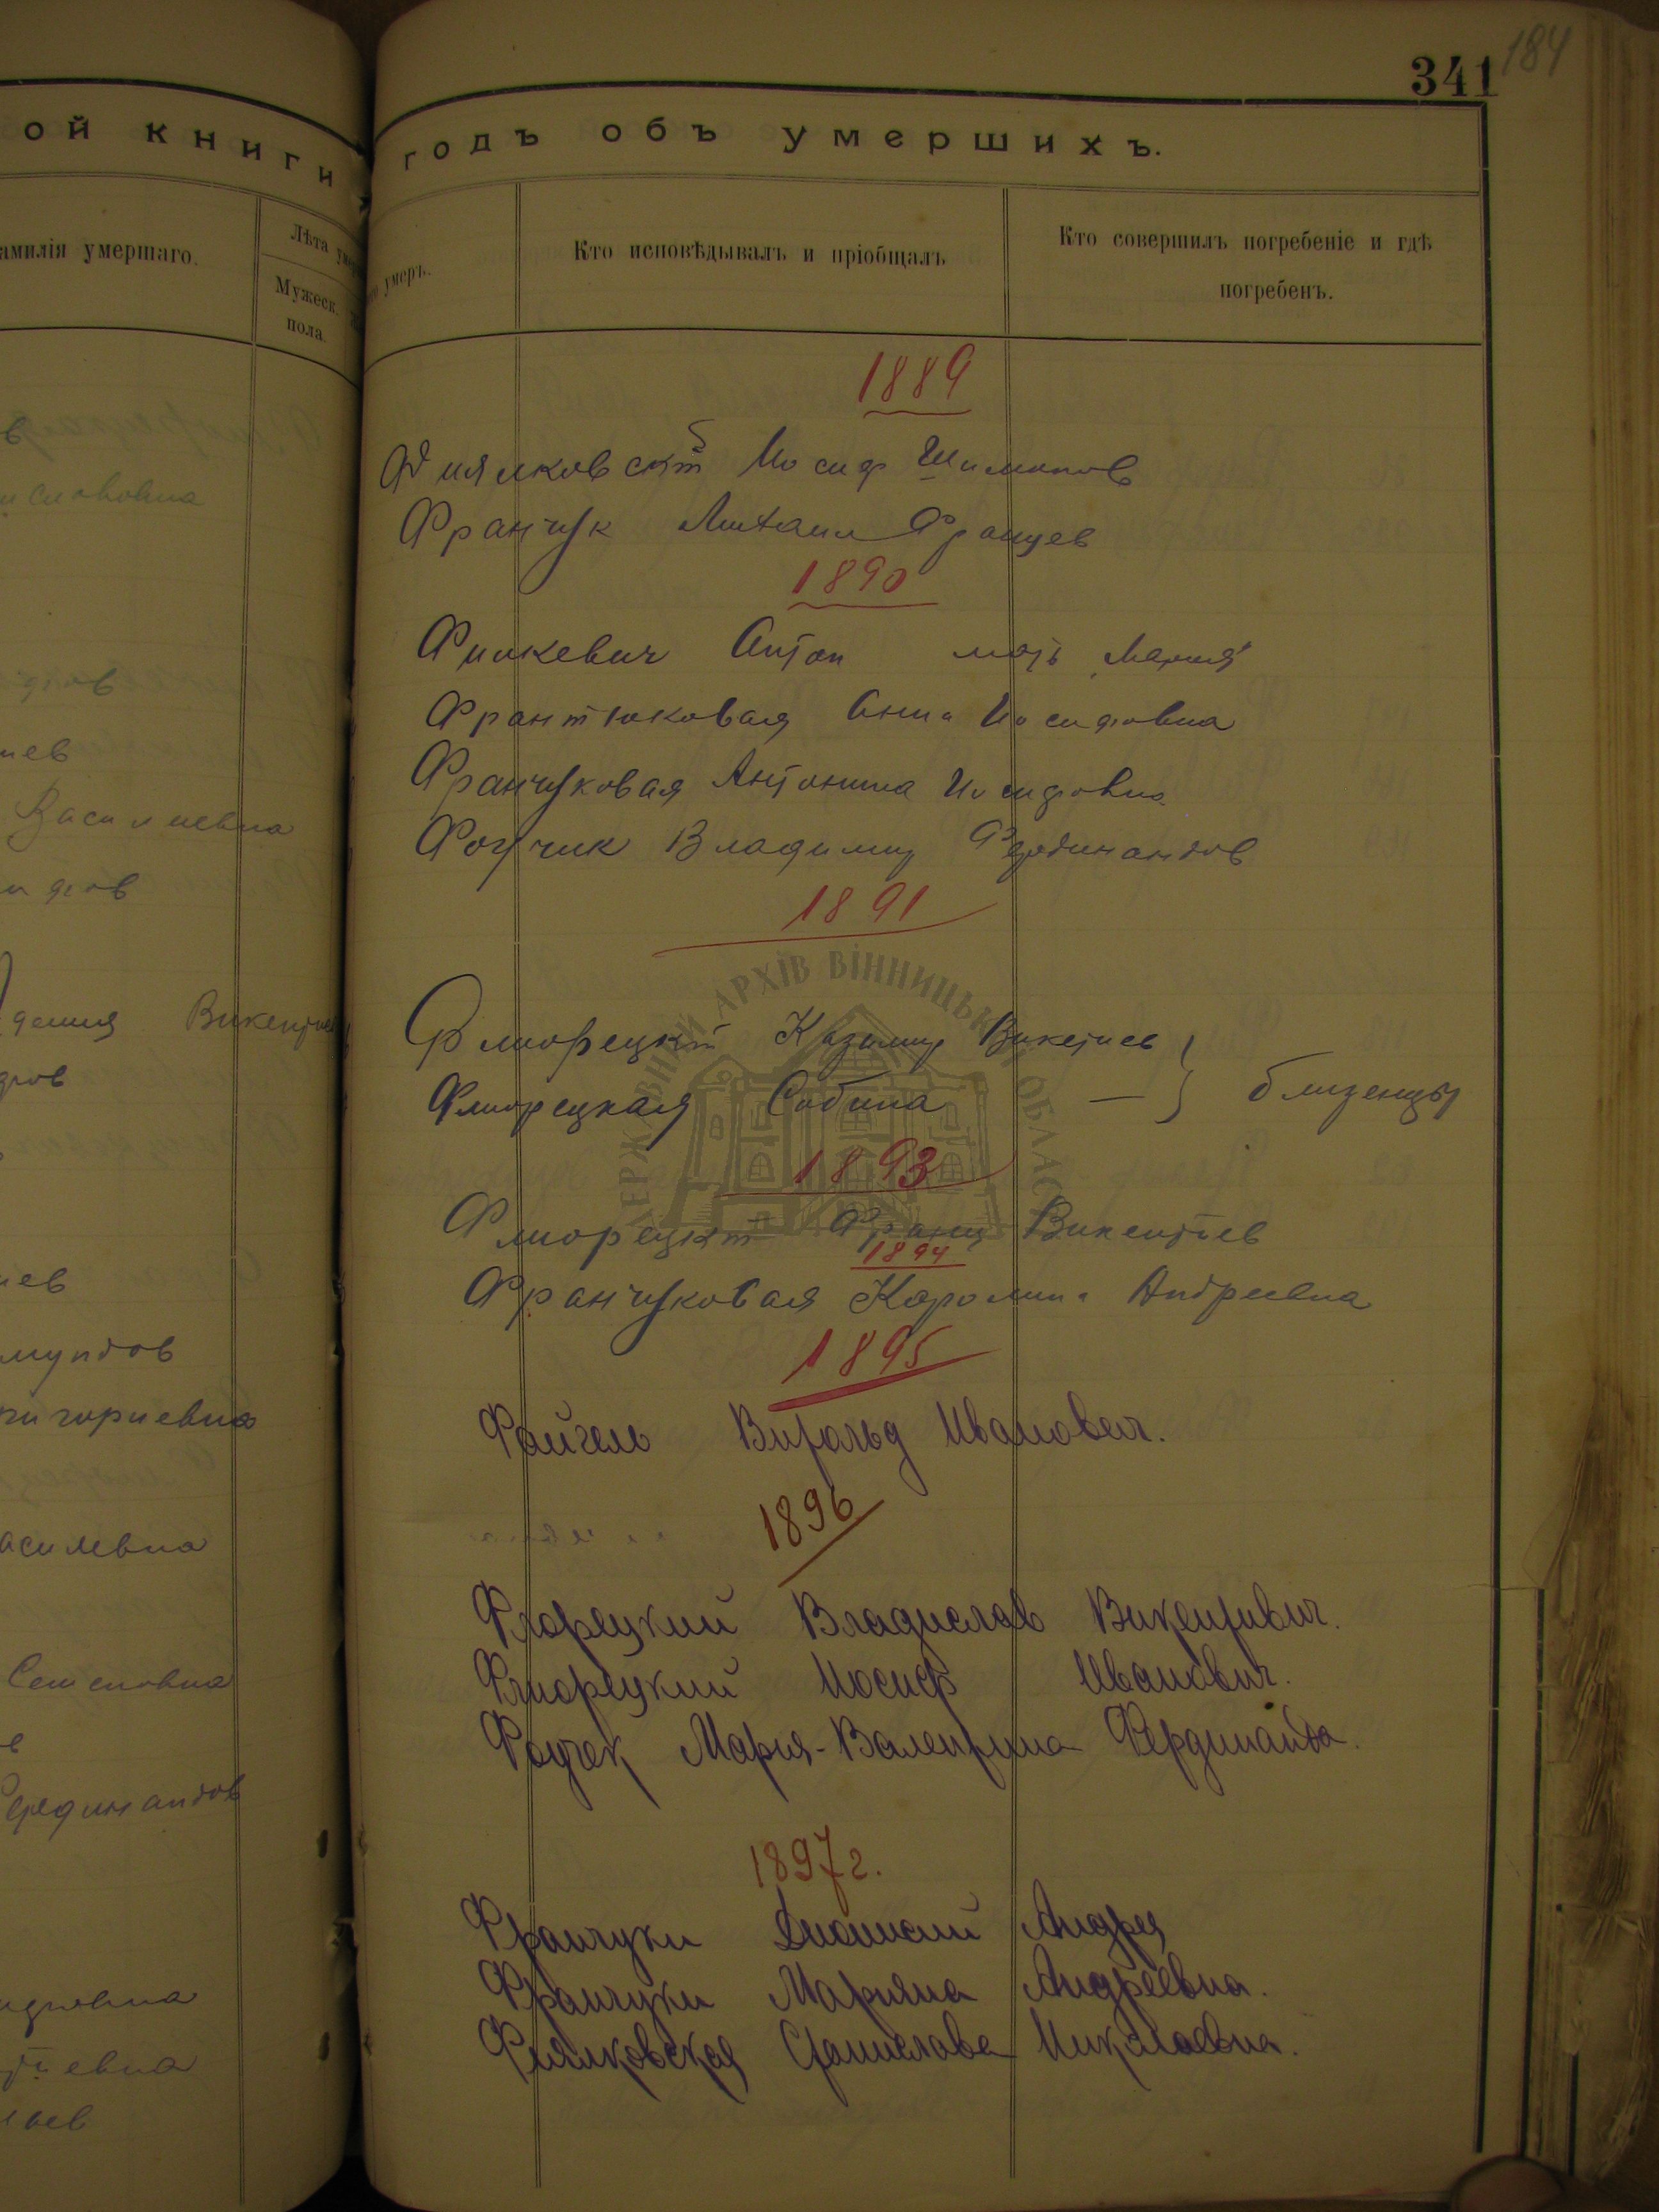 341 184
ой книги
годъ объ умершихъ.
амилія умершаго.
Лѣта
Мужеск.
пола
умеръ.
Кто исповѣдывалъ и пріобщалъ
Кто совершилъ погребеніе и гдѣ
погребенъ.
1889
Фиялковскій Иосиф Шимонов
Франчук Михаил Францев
1890
Финкевич Антон мать Мария
Франтюковая Анна Иосифовна
Франчуковая Антонина Иосифовна
Владимир Фердинандов
1891
Флиорецкій Казимир Викентиев
Флиорецкая Сабина — } близенцы
1893
Флиорецкій Франц Викентіев
1894
Франчуковая Каролина Андреевна
1895
Файгель Витольд Иванович.
1896
Флорецкий Владислав Викентивич.
Флиорецкий Иосиф Иванович.
Мария-Валентина
1897 г.
Франчуки Андрея
Франчуки Марияна Андреевна.
Фиялковская Станислава Николаевна.
исововна
Василиевна
Викентиев
мундов
григориевна
асилевна
Семеновна
Фердинандов
ДЕРЖАВНИЙ АРХІВ ВІННИЦЬКОЇ ОБЛАСТІ